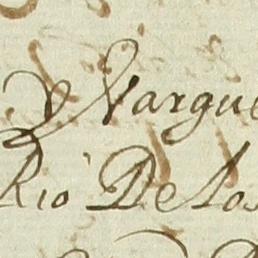 Y Nargue
Rio De Los